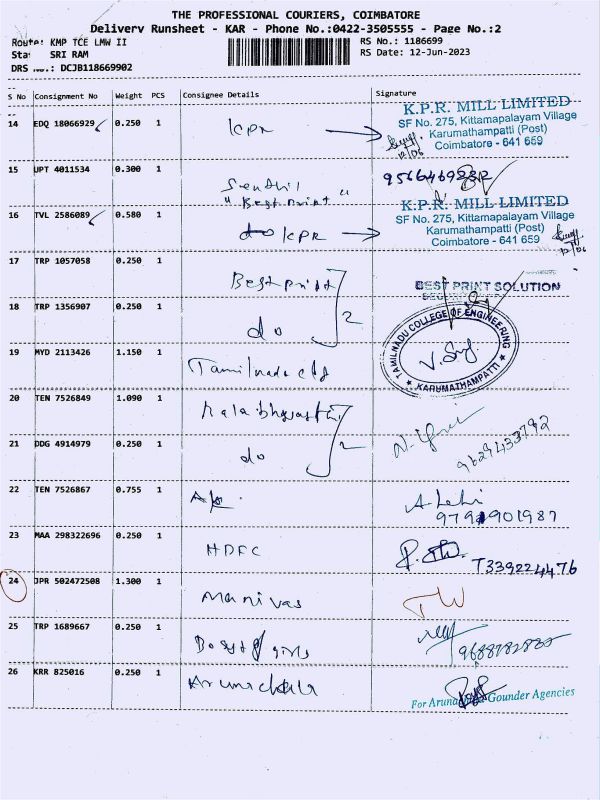 THE PROFESSIONAL COURIERS, COIMBATORE
Delivery Runsheet - KAR - Phone No.:0422-3505555 - Page No.:2
Route: KMP TCE LMW II
RS No.: 1186699
SRI RAM
RS Date: 12-Jun-2023
DRS No.: DCJB118669902
S No Consignment No Weight PCS Consignee Details Signature
14 EDQ 18066929 0.250 1 KPR
K.P.R. MILL LIMITED
SF No. 275, Kittamapalayam Village
Karumathampatti (Post)
Coimbatore - 641 659
12/06
15 UPT 4011534 0.300 1 Senthil
"Best print"
16 TVL 2586089 0.580 1 do KPR
K.P.R. MILL LIMITED
SF No. 275, Kittamapalayam Village
Karumathampatti (Post)
Coimbatore - 641 659
12/06
17 TRP 1057058 0.250 1 Best print
BEST PRINT SOLUTION
18 TRP 1356907 0.250 1 do 2
19 MYD 2113426 1.150 1
TAMILNADU COLLEGE OF ENGINEERING
★ KARUMATHAMPATTI ★
20 TEN 7526849 1.090 1
9629433792
21 DDG 4914979 0.250 1 do 2
22 TEN 7526867 0.755 1
23 MAA 298322696 0.250 1 HDFC
T339224476
24 JPR 502472508 1.300 1 Manivas
25 TRP 1689667 0.250 1
26 KRR 825016 0.250 1
Gounder Agencies